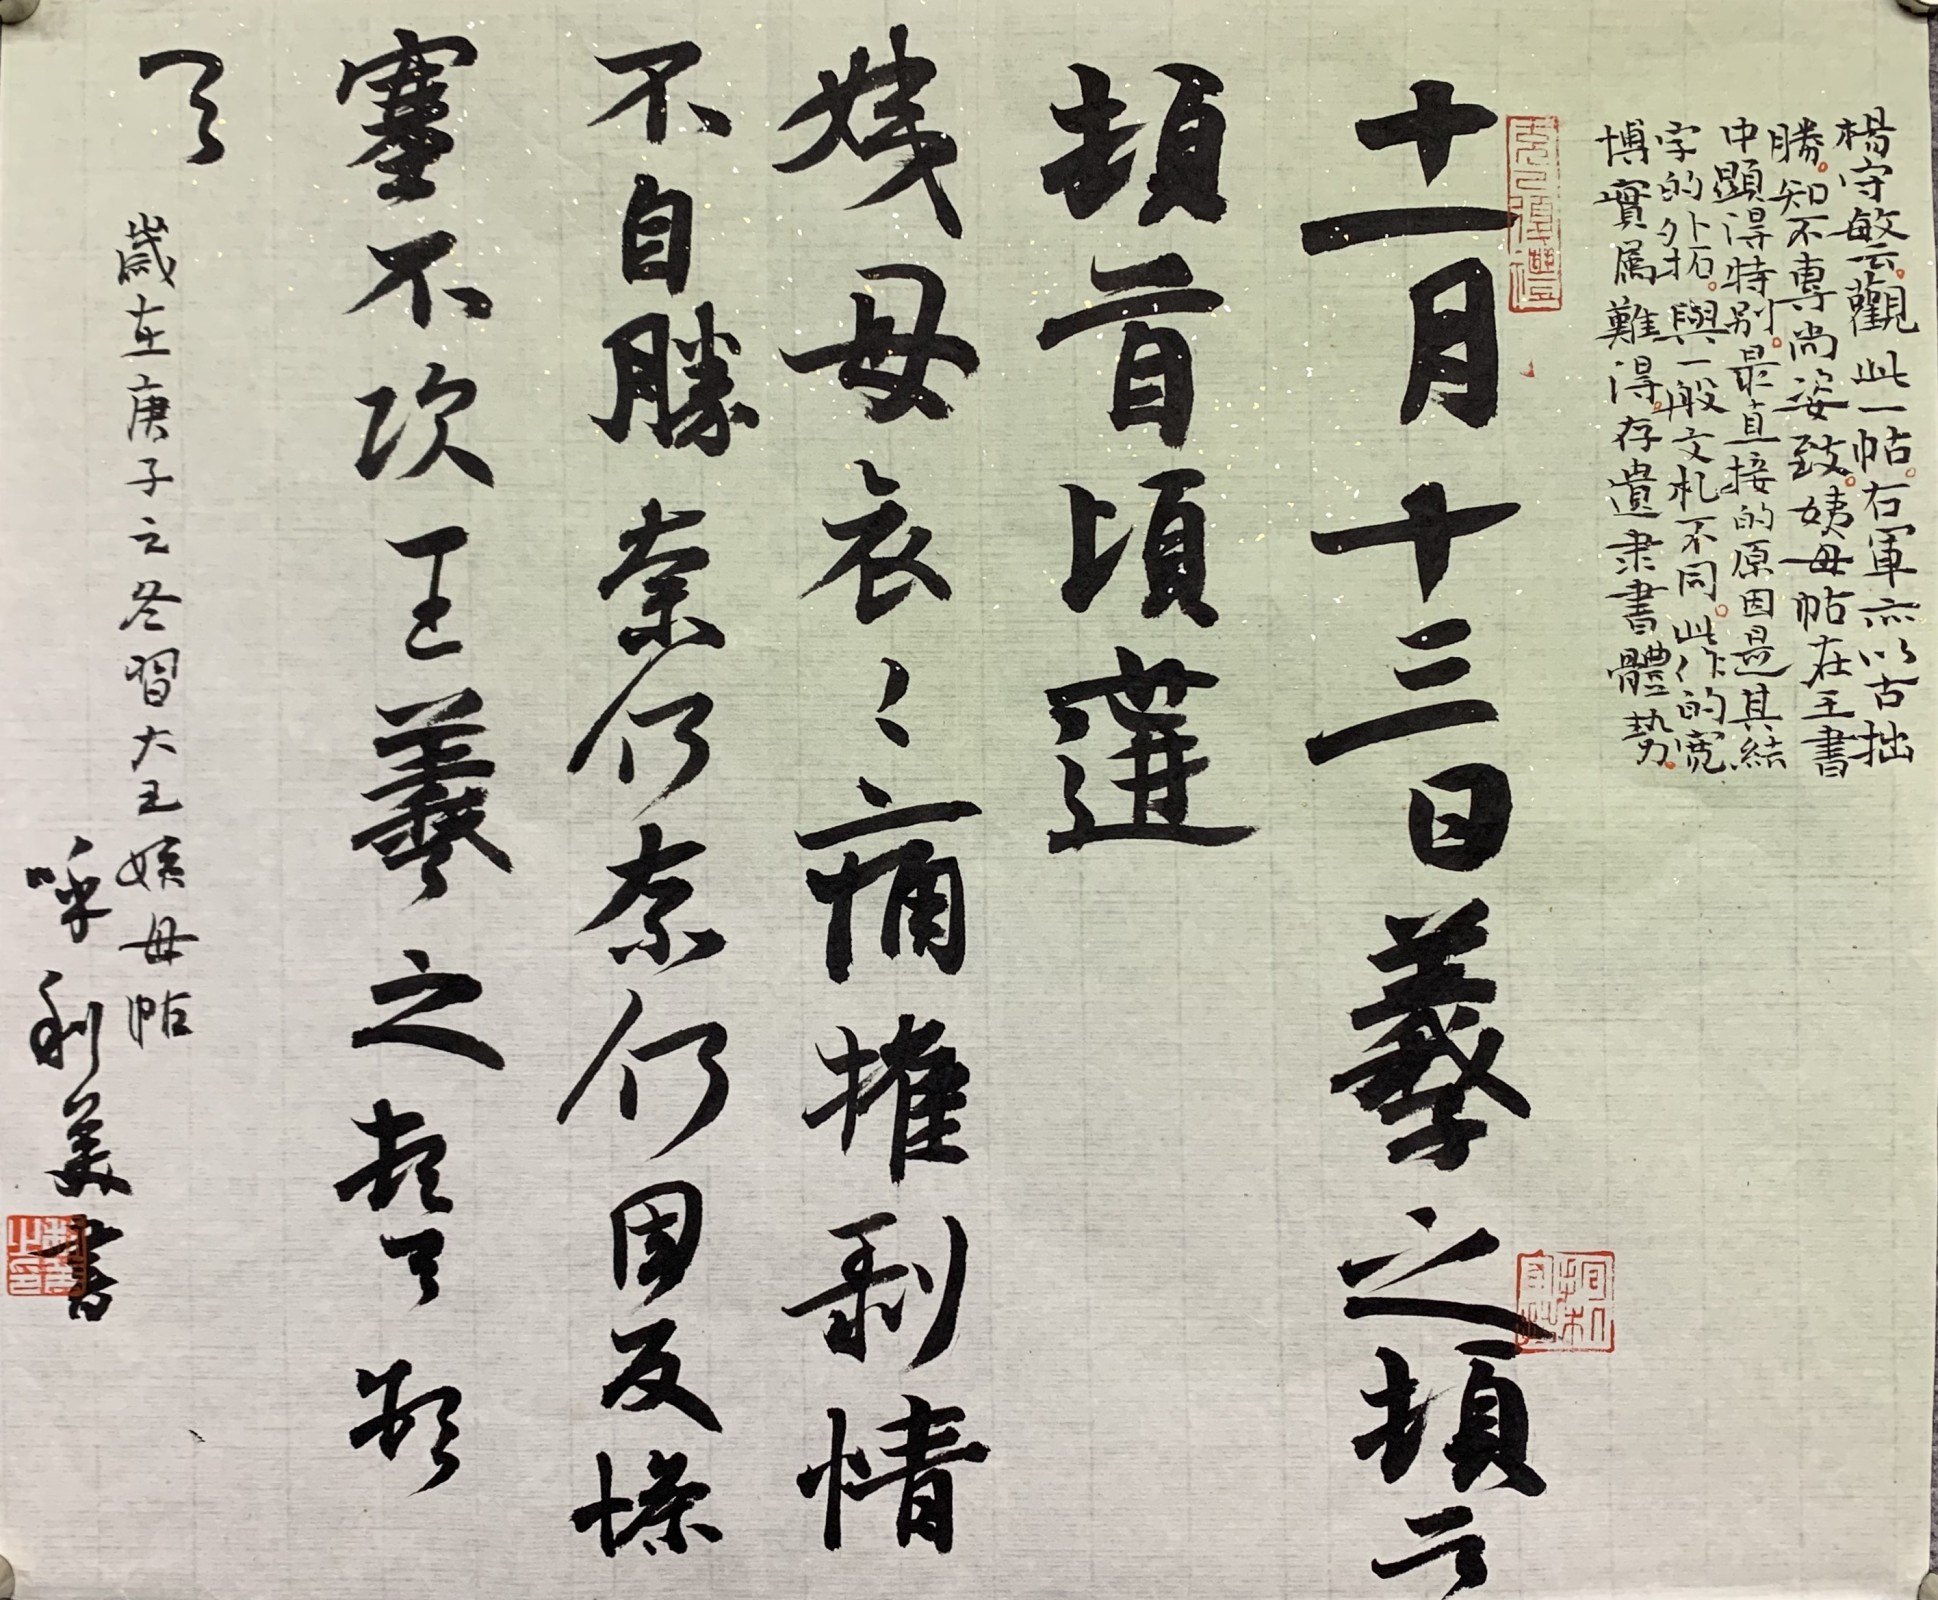 楊守敏云。觀此一帖。右軍亦以古拙
勝。知不專尚姿致。姨母帖在王書
中顯得特别。最直接的原因是其結
字的外拓。與一般文札不同。此作的宽
博實屬難得。存遺隶書體勢。
十一月十三日羲之頓首
頓首頃遘
姨母哀〻痛摧剥情
不自勝奈何奈何因反慘
塞不次王羲之頓首頓
首
歲在庚子之冬習大王姨母帖
呼利美書